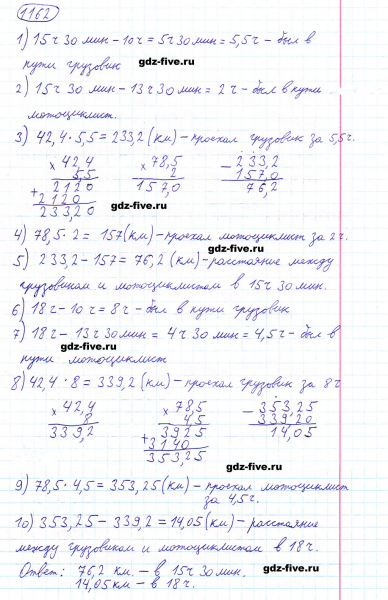 1162
1) 15 ч 30 мин – 10 ч = 5 ч 30 мин = 5,5 ч – был в
пути грузовик
gdz-five.ru
2) 15 ч 30 мин – 13 ч 30 мин = 2 ч – был в пути
мотоциклист.
gdz-five.ru
3) 42,4 · 5,5 = 233,2 (км) – проехал грузовик за 5,5 ч.
× 42,4
5,5
+ 2120
2120
233,20
× 78,5
2
157,0
– 233,2
157,0
76,2
gdz-five.ru
4) 78,5 · 2 = 157 (км) – проехал мотоциклист за 2 ч.
gdz-five.ru
5) 233,2 – 157 = 76,2 (км) – расстояние между
грузовиком и мотоциклистом в 15 ч 30 мин.
6) 18 ч – 10 ч = 8 ч – был в пути грузовик
gdz-five.ru
7) 18 ч – 13 ч 30 мин = 4 ч 30 мин = 4,5 ч – был в
пути мотоциклист
gdz-five.ru
8) 42,4 · 8 = 339,2 (км) – проехал грузовик за 8 ч
× 42,4
8
339,2
× 78,5
4,5
+ 3925
3140
353,25
– 353,25
339,20
14,05
gdz-five.ru
9) 78,5 · 4,5 = 353,25 (км) – проехал мотоциклист
за 4,5 ч.
gdz-five.ru
10) 353,25 – 339,2 = 14,05 (км) – расстояние
между грузовиком и мотоциклистом в 18 ч.
Ответ: 76,2 км. – в 15 ч 30 мин.
14,05 км – в 18 ч.
gdz-five.ru